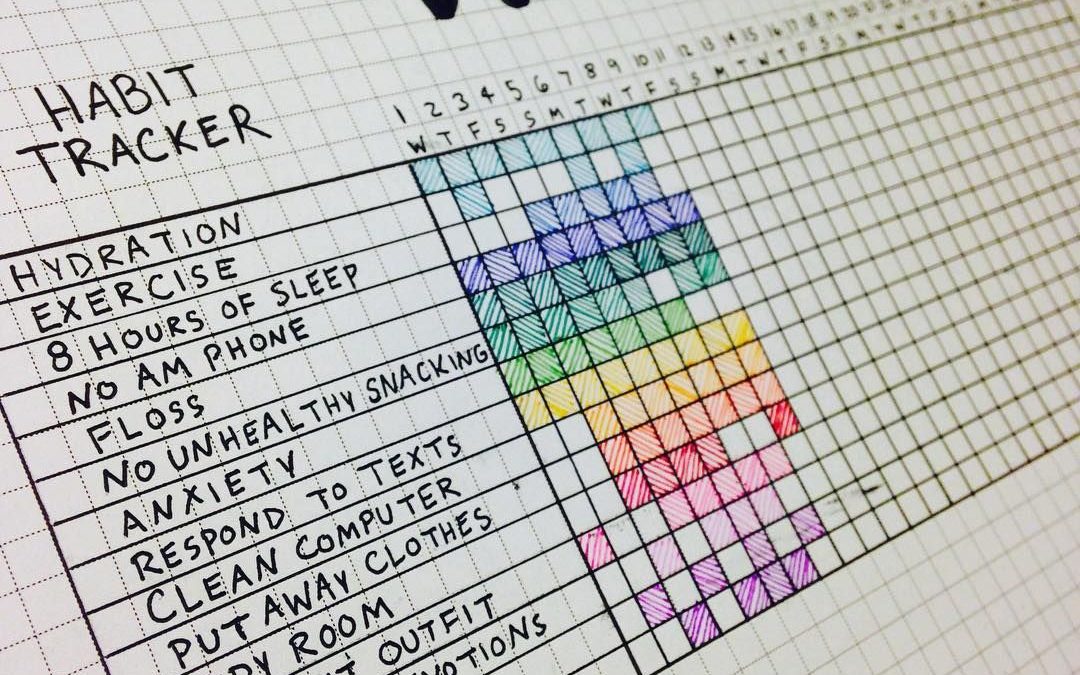 HABIT
TRACKER
1 2 3 4 5 6 7 8 9 10 11 12 13 14 15 16 17 18
W T F S S M T W T F S S M T W T F S S M T W T F S S
HYDRATION
EXERCISE
8 HOURS OF SLEEP
NO AM PHONE
FLOSS
NO UNHEALTHY SNACKING
ANXIETY
RESPOND TO TEXTS
CLEAN COMPUTER
PUT AWAY CLOTHES
DY ROOM
T OUTFIT
VOTIONS